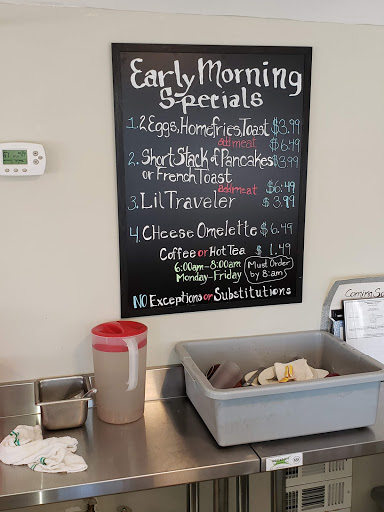 Early Morning
Specials
1. 2 Eggs, Homefries, Toast $3.99
add meat $6.49
2. Short Stack of Pancakes $3.99
or French Toast
add meat $6.49
3. Lil Traveler $3.99
4. CHeese Omelette $6.49
Coffee or Hot Tea $1.49
6:00am-8:00am
Monday-Friday
Must Order
by 8:am
NO Exceptions or Substitutions
Coming